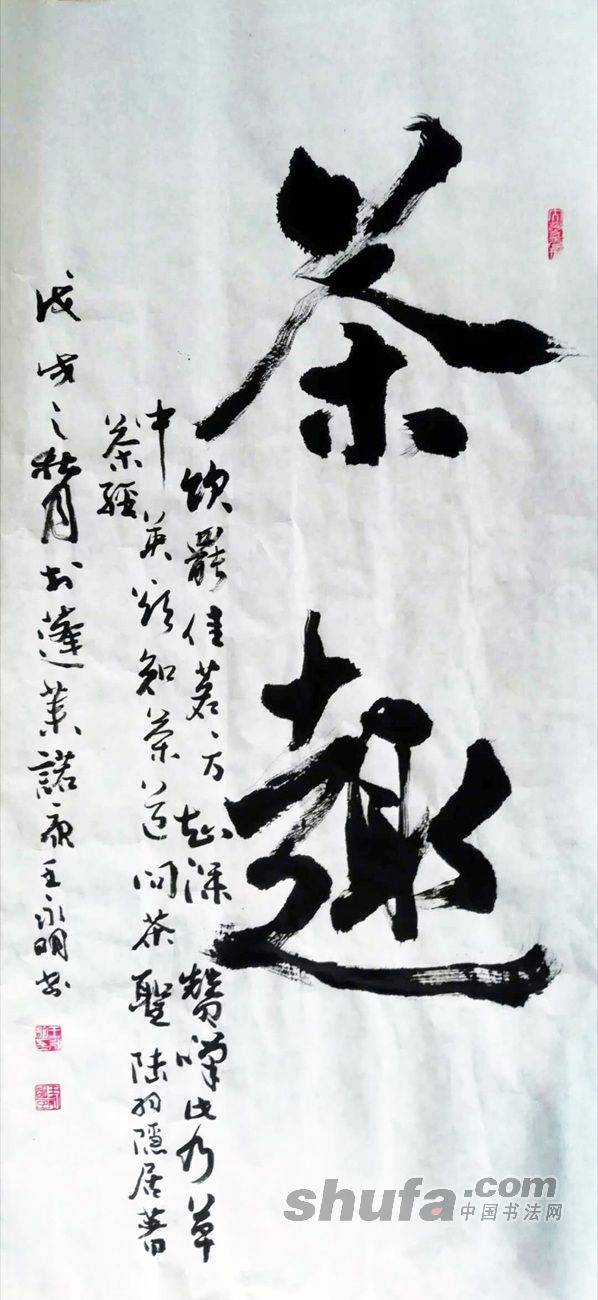 茶趣
饮罢佳茗方知深 赞叹此乃草
中英 欲知茶道问茶圣 陆羽隐居著
茶經
戊戌之秋月於蓬莱諾康王永明书
shufa.com
中国书法网